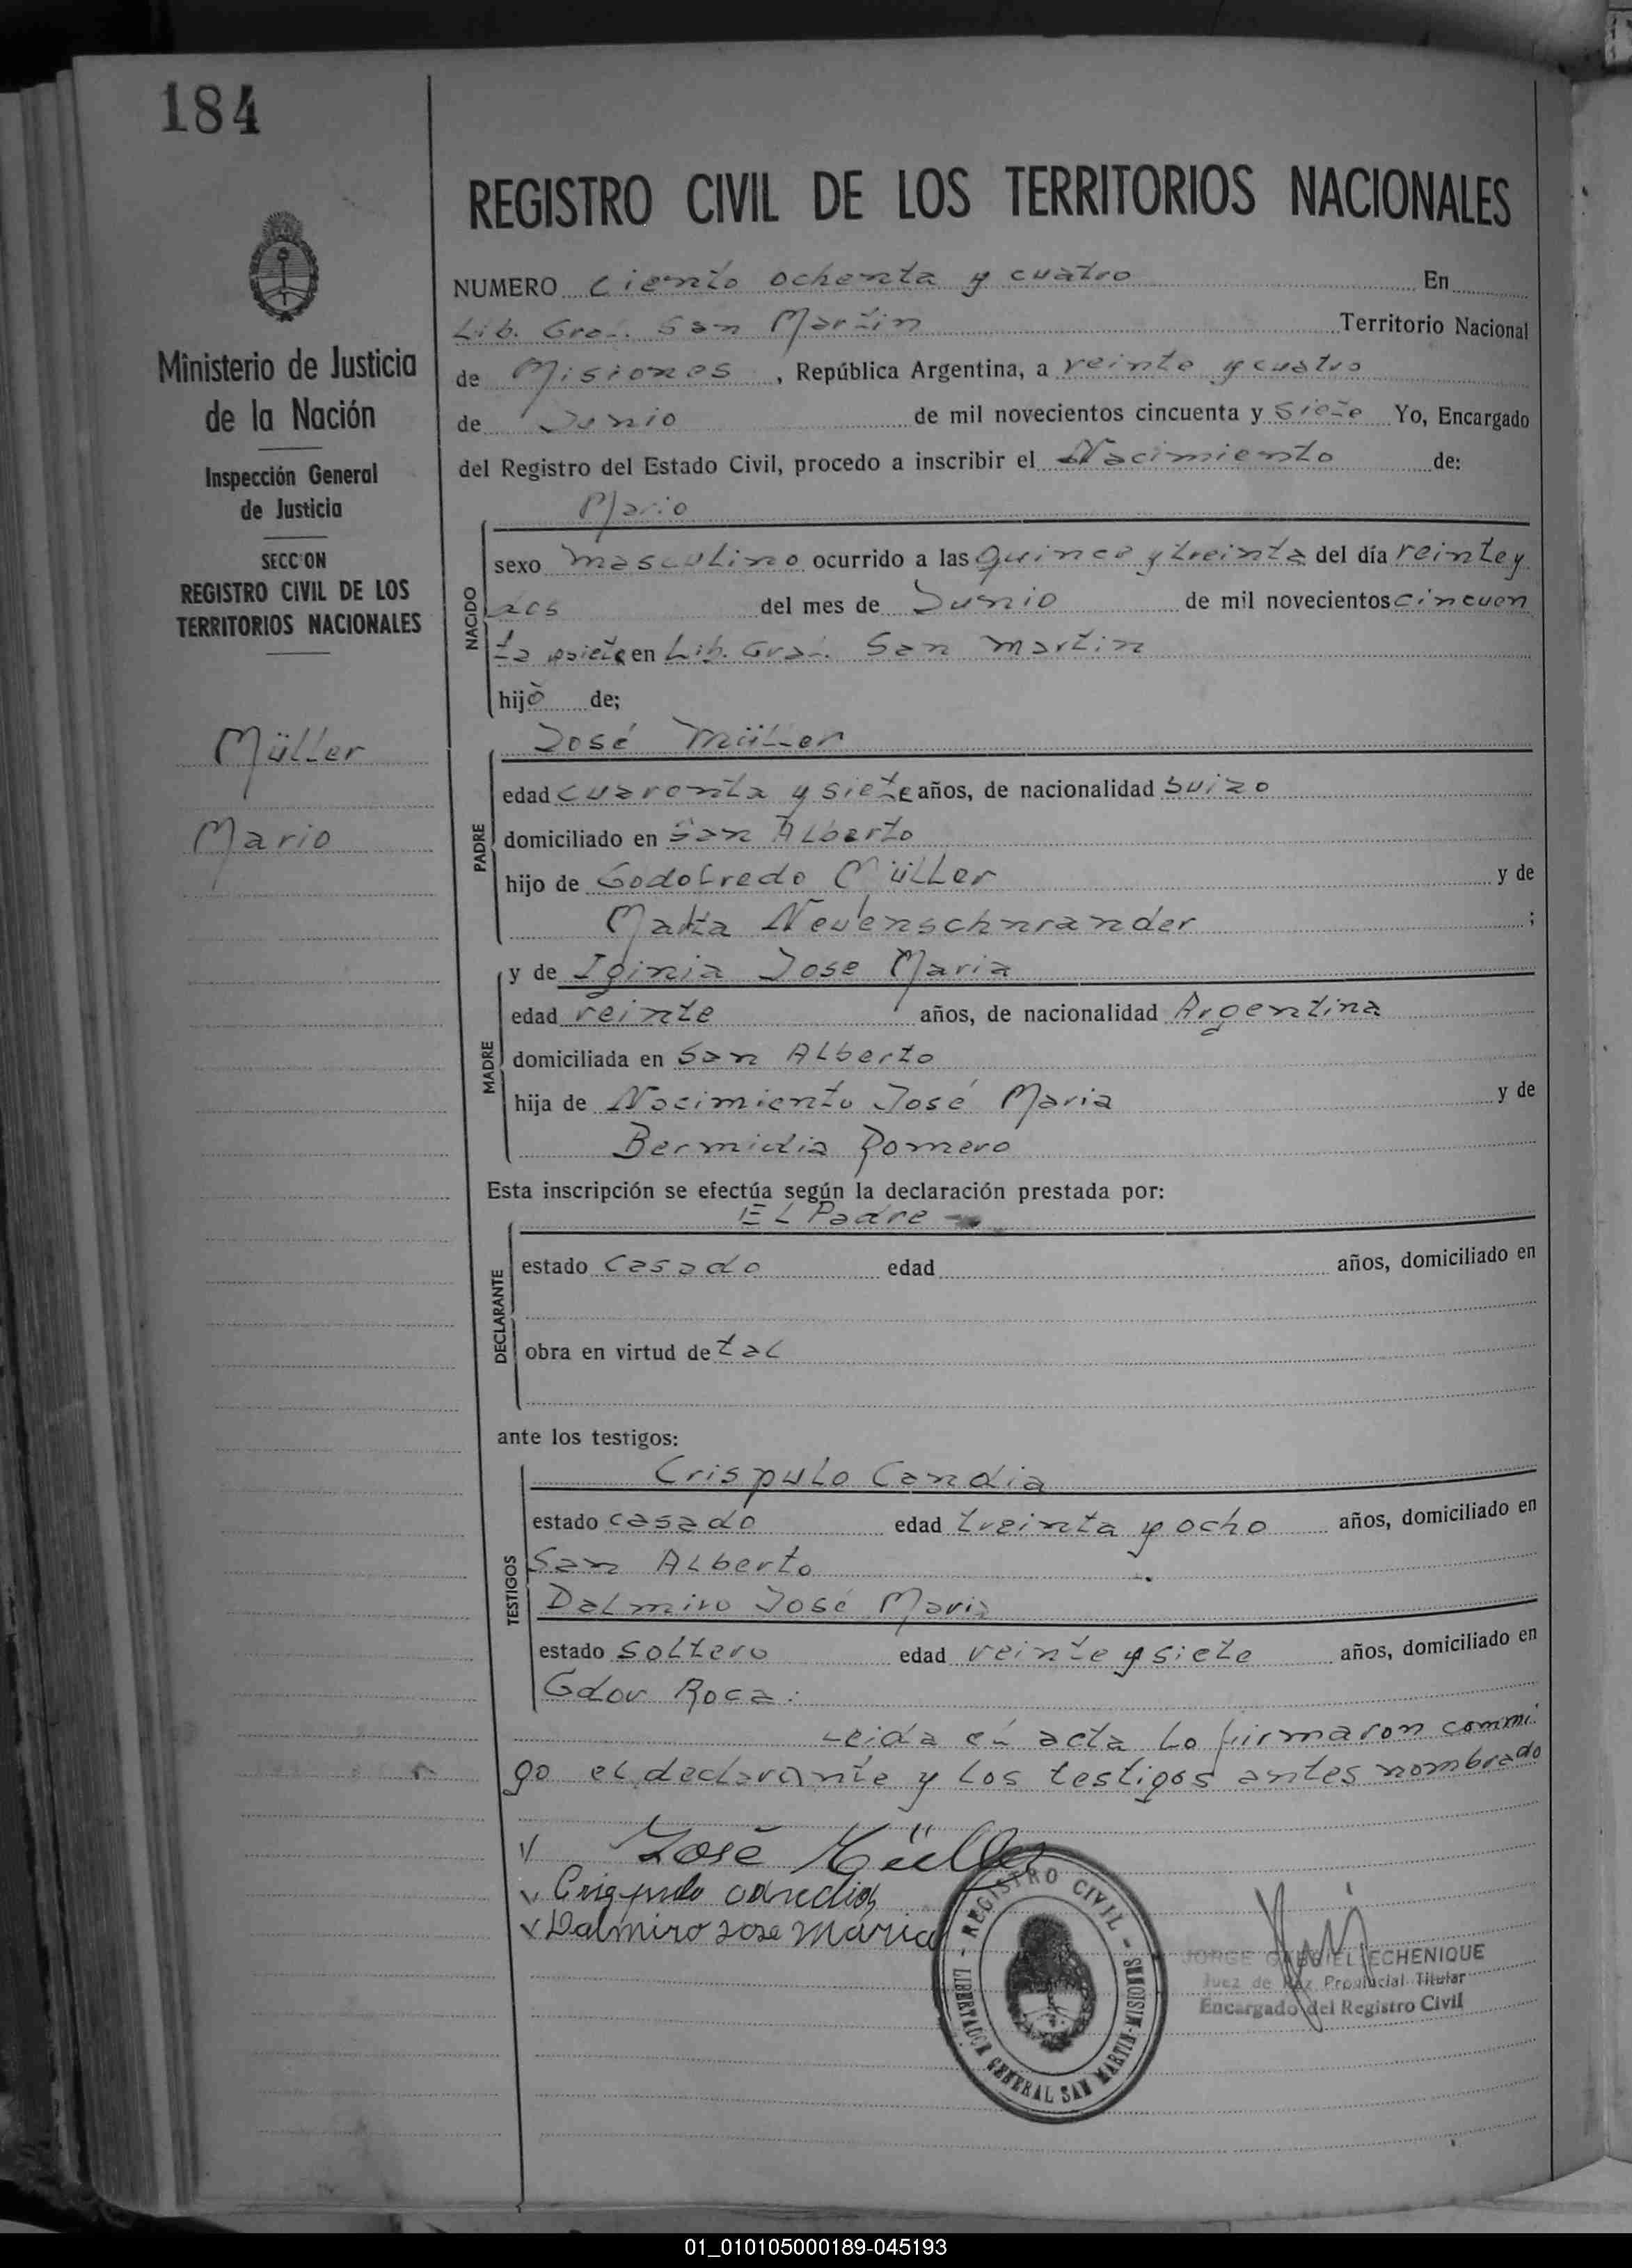 184
REGISTRO CIVIL DE LOS TERRITORIOS NACIONALES
Ministerio de Justicia
de la Nación
Inspección General
de Justicia
SECCION
REGISTRO CIVIL DE LOS
TERRITORIOS NACIONALES
Müller
Mario
NUMERO ciento ochenta y cuatro En
Lib. Gral. San Martin Territorio Nacional
de Misiones, República Argentina, a veinte y cuatro
de Junio de mil novecientos cincuenta y siete Yo, Encargado
del Registro del Estado Civil, procedo a inscribir el Nacimiento de:
Mario
NACIDO
sexo masculino ocurrido a las quince y treinta del día veinte y
dos del mes de Junio de mil novecientos cincuen
ta y siete en Lib. Gral. San Martin
hijo de;
José Müller
PADRE
edad cuarenta y siete años, de nacionalidad suizo
domiciliado en San Alberto
hijo de Godofredo Müller y de
Marta Neuenschwander ;
y de Iginia Jose Maria
MADRE
edad veinte años, de nacionalidad Argentina
domiciliada en San Alberto
hija de Nacimiento José Maria y de
Bermidia Romero
Esta inscripción se efectúa según la declaración prestada por:
El Padre
DECLARANTE
estado casado edad años, domiciliado en
obra en virtud de tal
ante los testigos:
Crispulo Candia
TESTIGOS
estado casado edad treinta y ocho años, domiciliado en
San Alberto
Dalmiro José Maria
estado soltero edad veinte y siete años, domiciliado en
Gdor Roca.
Leida el acta lo firmaron conmi
go el declarante y los testigos antes nombrado
José Müller
Crispulo candia
Dalmiro Jose Maria
REGISTRO CIVIL - LIBERTADOR GENERAL SAN MARTIN-MISIONES
JORGE GABRIEL ECHENIQUE
Juez de Paz Provincial Titular
Encargado del Registro Civil
01_010105000189-045193